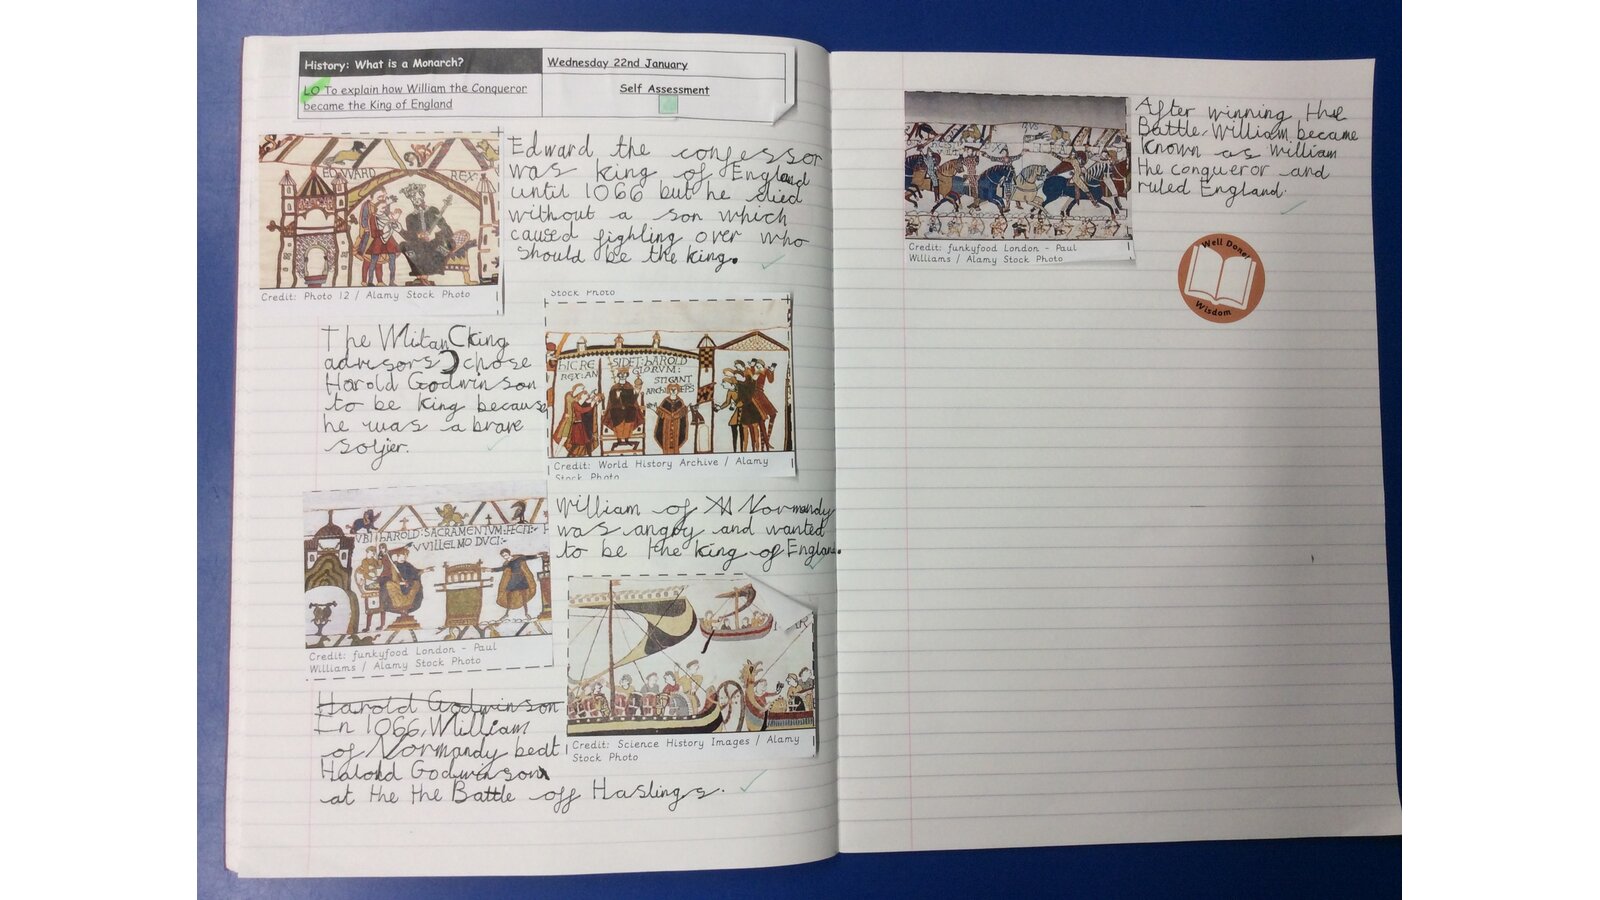 History: What is a Monarch?
Wednesday 22nd January
LO To explain how William the Conqueror
became the King of England
Self Assessment
EDWARD REX:
Credit: Photo 12 / Alamy Stock Photo
Edward the confessor
was king of England
until 1066 but he died
without a son which
caused fighting over who
should be the king.
The Witan (king
advisors) chose
Harold Godwinson
to be king because
he was a brave
soljier.
Stock Photo
HIC RE SIDET: HAROLD
REX: AN GLORVM:
STIGANT
ARCHI EPS
Credit: World History Archive / Alamy
Stock Photo
VBI: HAROLD: SACRAMENTVM: FECIT:
VVILLELMO DVCI:-
Credit: funkyfood London - Paul
Williams / Alamy Stock Photo
William of Normandy
was angry and wanted
to be the king of England.
Credit: Science History Images / Alamy
Stock Photo
Harold Godwinson
In 1066, William
of Normandy beat
Harold Godwinson
at the the Battle off Hastings.
Credit: funkyfood London - Paul
Williams / Alamy Stock Photo
After winning the
Battle, William became
known as William
the conqueror and
ruled England.
Well Done!
Wisdom